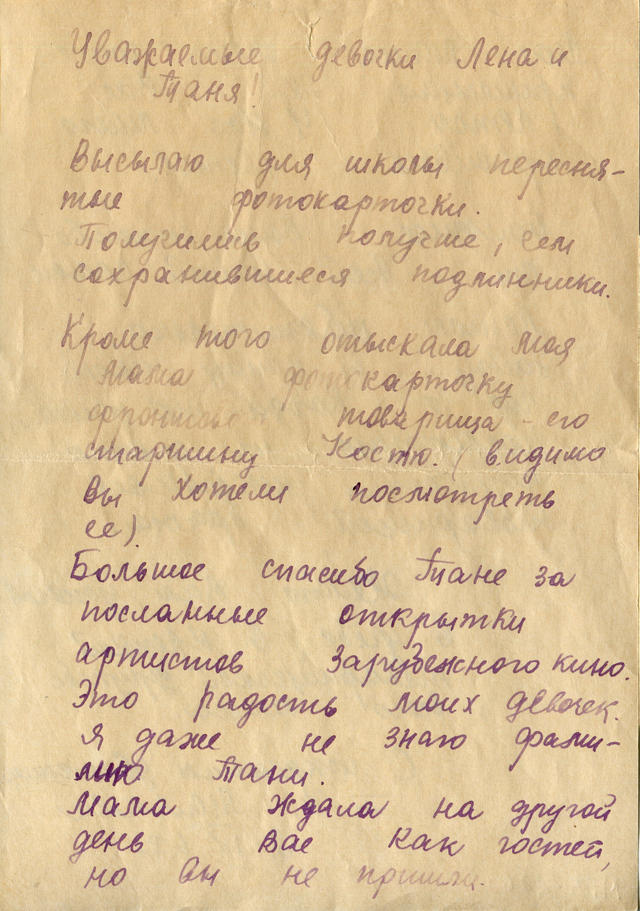 Уважаемые девочки Лена и
Таня!
Высылаю для школы пересня-
тые фотокарточки.
Получились получше, чем
сохранившиеся подлинники.
Кроме того отыскала моя
мама фотокарточку
фронтового товарища - его
старшину Костю. (видимо
вы хотели посмотреть
ее).
Большое спасибо Тане за
посланные открытки
артистов зарубежного кино.
Это радость моих девочек.
Я даже не знаю фами-
лию Тани.
Мама ждала на другой
день вас как гостей,
но вы не пришли.